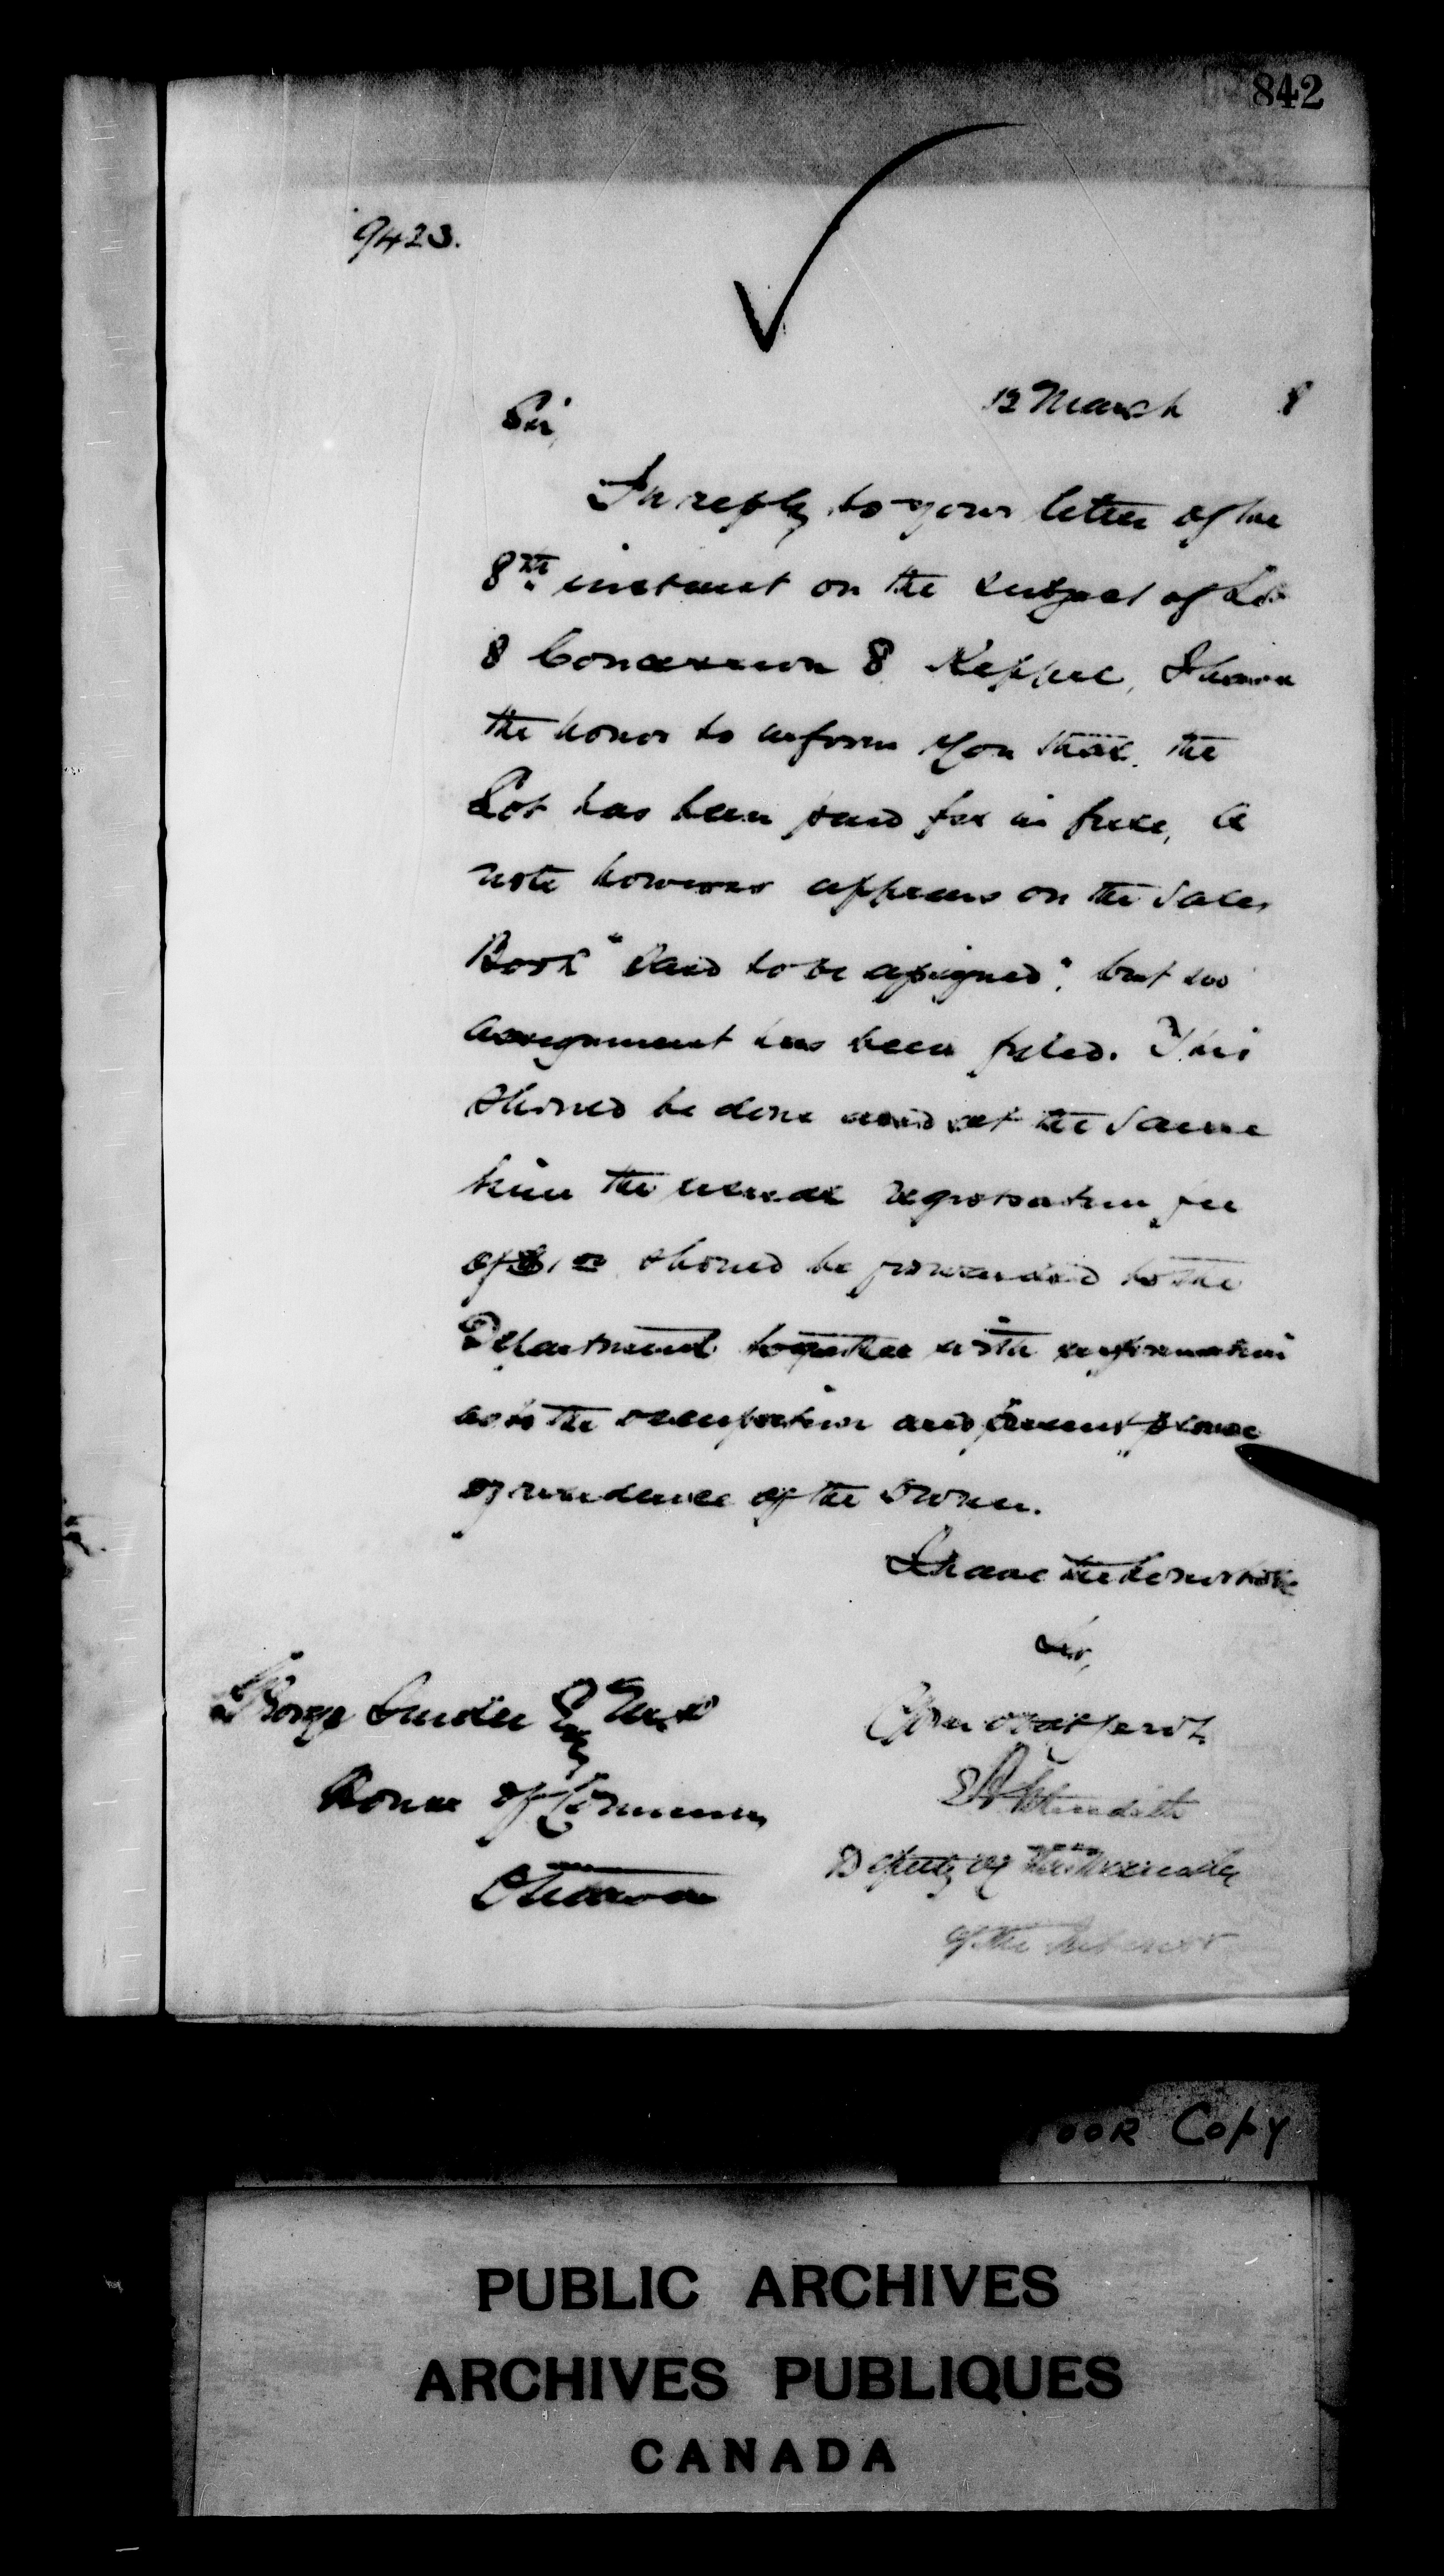 842
9423.
12 March 8
Sir,
In reply to your letter of the
8th instant on the subject of Lot
8 Concession 8 Keppel, I have
the honor to inform you that the
Lot has been paid for in full, a
note however appears on the Sales
Book "Said to be assigned", but no
assignment has been filed. This
should be done and at the same
time the usual registration fee
of $1.00 should be forwarded to the
Department together with information
as to the occupation and present place
of residence of the owner.
I have the honor to be
Sir,
Your obdt Servt.
George Snider Esq M.P.
House of Commons
Ottawa
E A Meredith
Deputy of the Minister
of the Interior
POOR COPY
PUBLIC ARCHIVES
ARCHIVES PUBLIQUES
CANADA